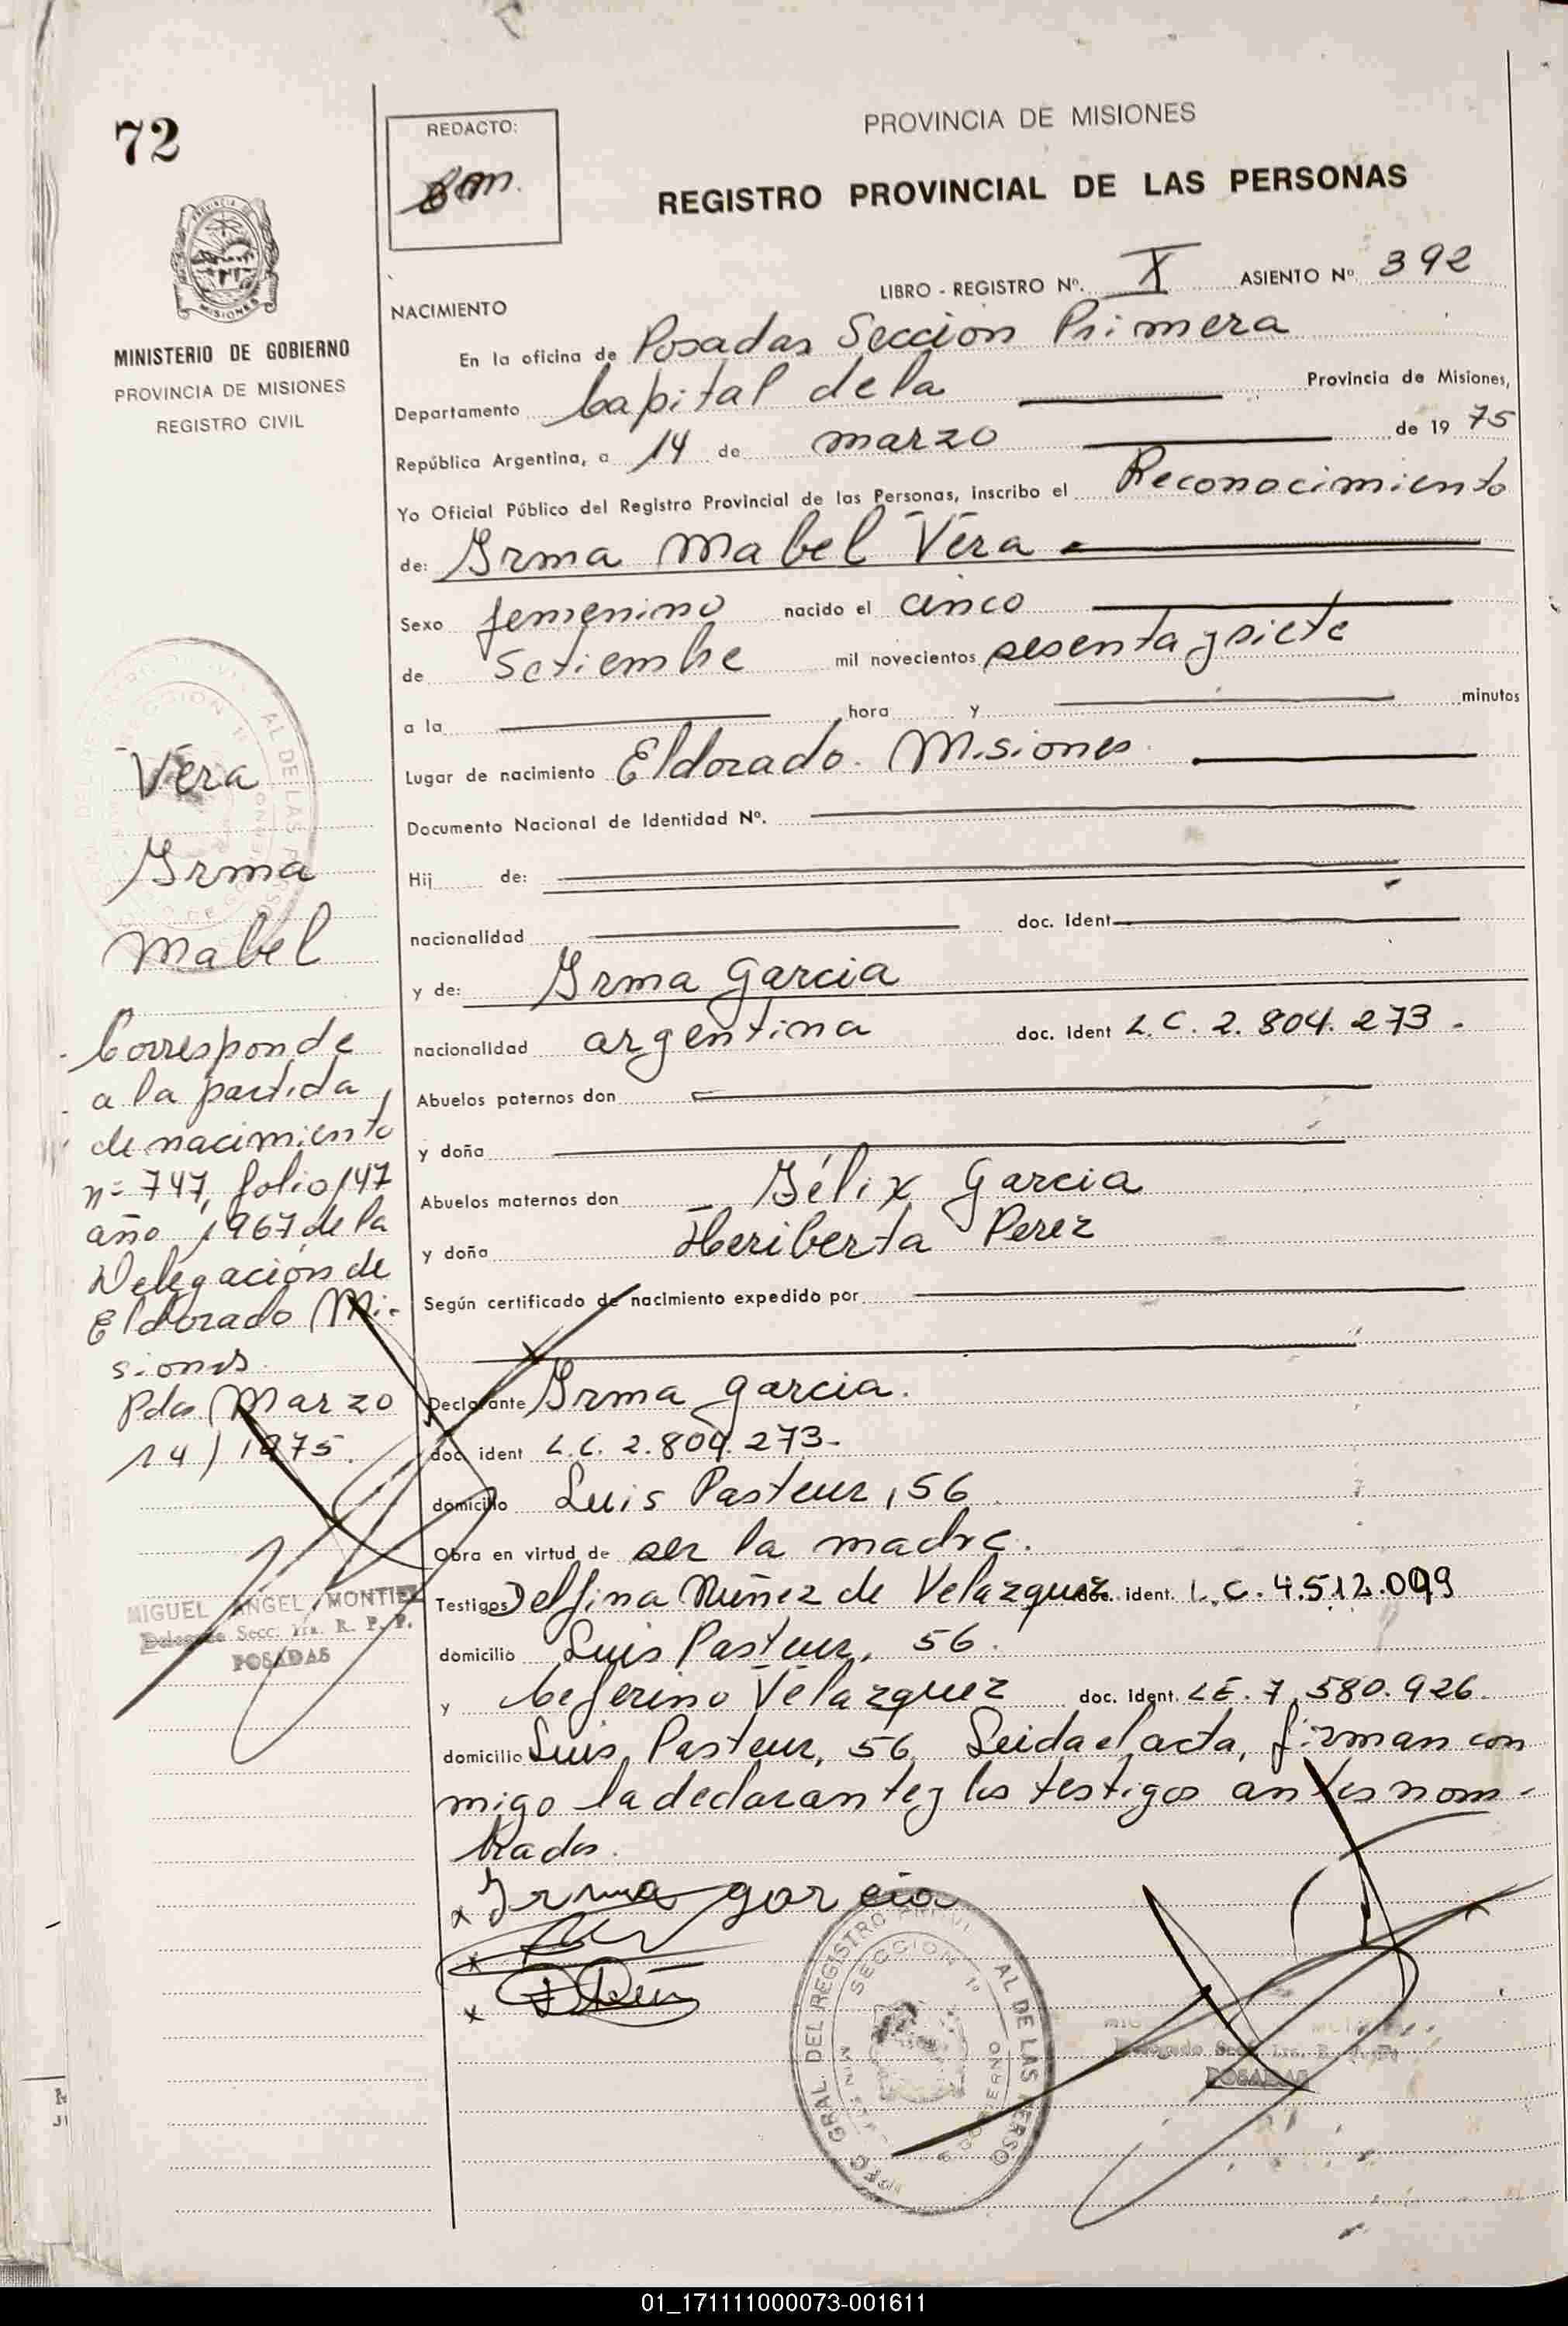 72
REDACTO:
PROVINCIA DE MISIONES
REGISTRO PROVINCIAL DE LAS PERSONAS
LIBRO - REGISTRO Nº. X ASIENTO Nº 392
NACIMIENTO
MISIONES
MINISTERIO DE GOBIERNO
PROVINCIA DE MISIONES
REGISTRO CIVIL
En la oficina de Posadas Seccion Primera
Departamento Capital de la Provincia de Misiones,
República Argentina, a 14 de marzo de 19 75
Yo Oficial Público del Registro Provincial de las Personas, inscribo el Reconocimiento
de: Irma Mabel Vera
Sexo femenino nacido el cinco
de Setiembre mil novecientos sesenta y siete
a la hora y minutos
Lugar de nacimiento Eldorado. Misiones.
Documento Nacional de Identidad Nº.
Hij de:
nacionalidad doc. ident
y de: Irma Garcia
nacionalidad argentina doc. ident L.C. 2.804.273.
Abuelos paternos don
y doña
Abuelos maternos don Félix Garcia
y doña Heriberta Perez
Según certificado de nacimiento expedido por
Declarante Irma Garcia.
doc. ident L.C. 2.804.273.
domicilio Luis Pasteur, 56
Obra en virtud de ser la madre.
Testigos Delfina Nuñez de Velazquez doc. ident. L.C. 4.512.099
domicilio Luis Pasteur, 56.
y Ceferino Velazquez doc. ident. L.E. 7.580.926.
domicilio Luis Pasteur, 56 Leida el acta, firman con
migo la declarante y los testigos antes nom-
brados.
x Irma garcia
x
x
Vera
Irma
Mabel
Corresponde
a la partida
de nacimiento
nº 747, folio 147
año 1967, de la
Delegación de
Eldorado Mi-
siones.
Pdas Marzo
14/1975.
MIGUEL ANGEL MONTIEL
Delegado Secc. 1ra. R. P. P.
POSADAS
GRAL DEL REGISTRO
AL DE LAS PERSO
SECCION 1º
Delegado Secc. 1ra. R. P. P.
POSADAS
01_171111000073-001611